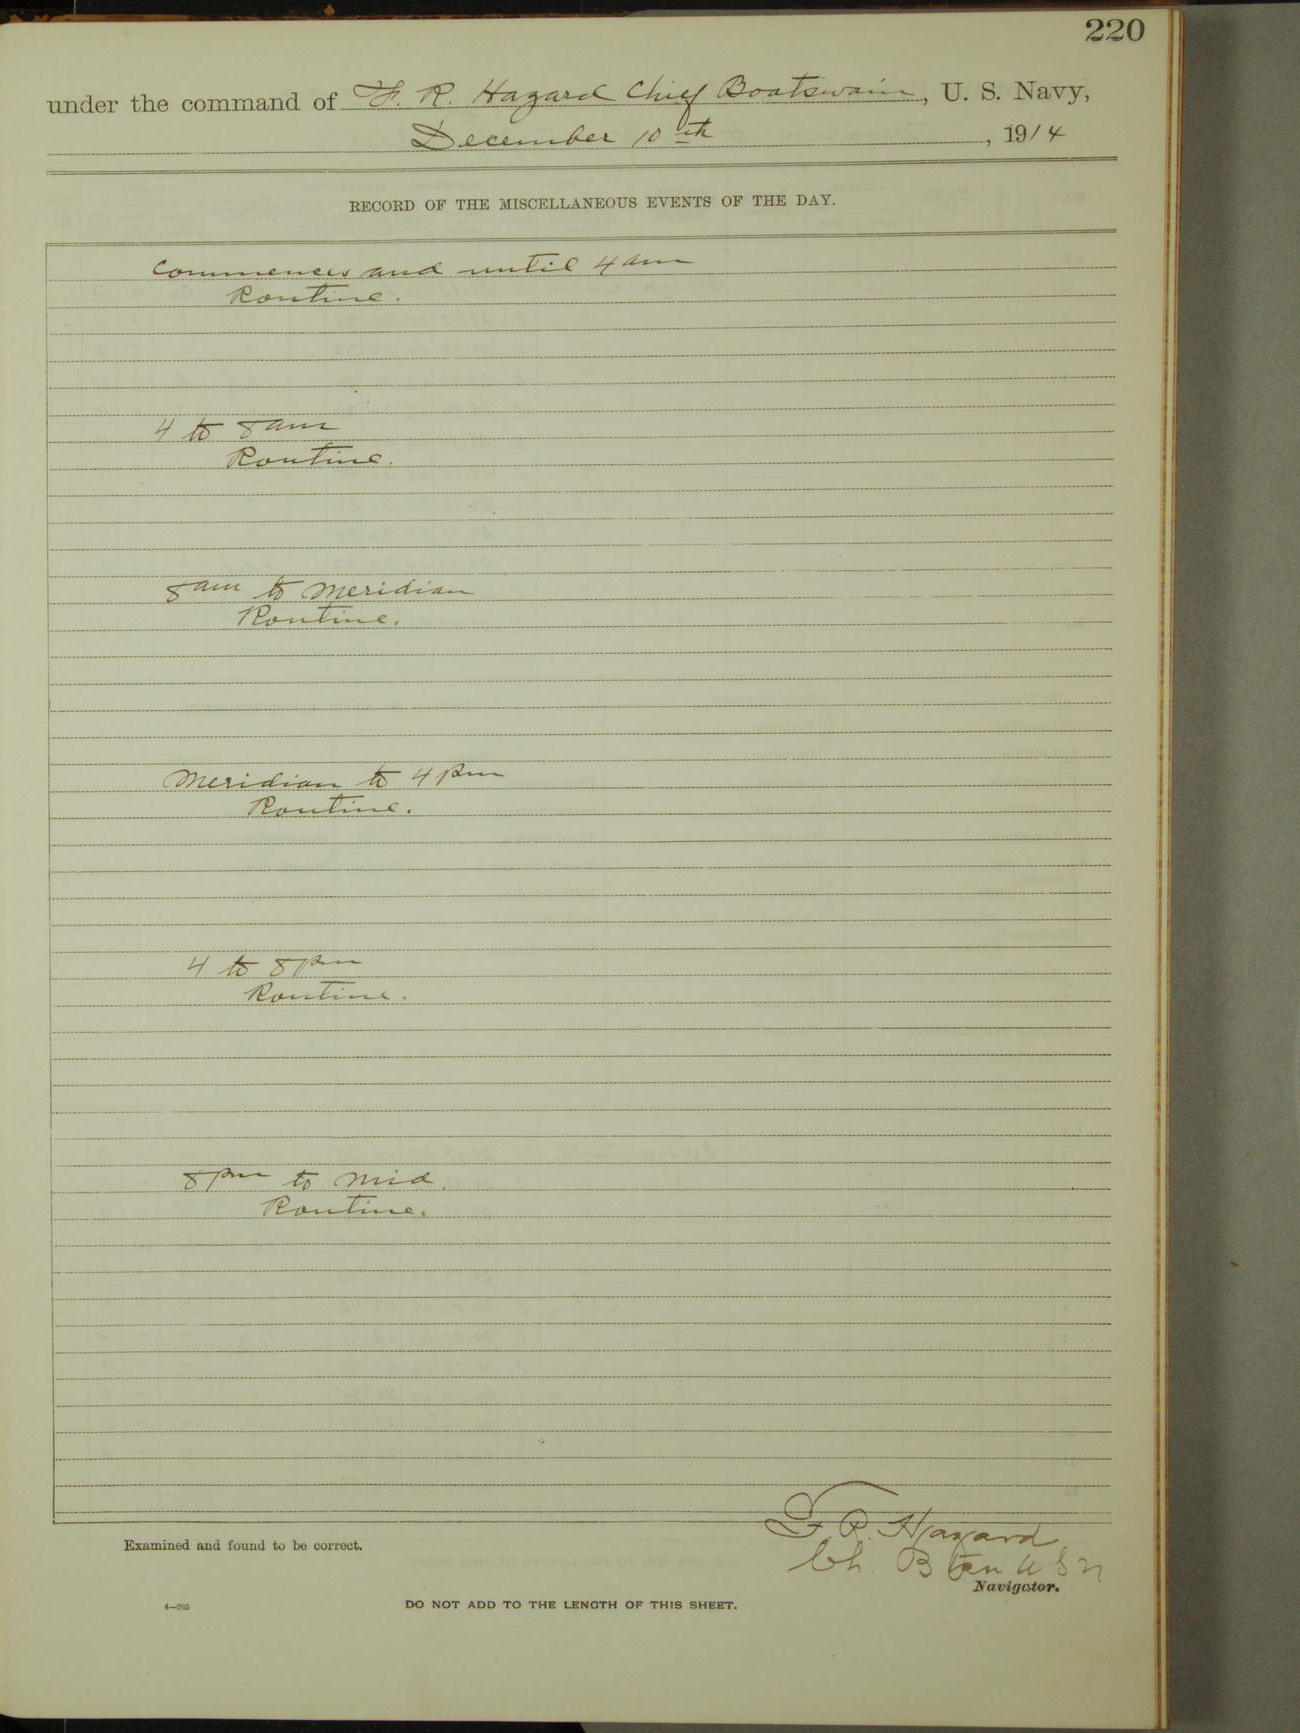 220
under the command of F. R. Hazard Chief Boatswain, U. S. Navy,
December 10th, 1914
RECORD OF THE MISCELLANEOUS EVENTS OF THE DAY.
Commences and until 4 am
Routine.
4 to 8 am
Routine.
8 am to Meridian
Routine.
Meridian to 4 pm
Routine.
4 to 8 pm
Routine.
8 pm to Mid.
Routine.
F. R. Hazard
Examined and found to be correct.
Ch. Btsn U S N
Navigator.
4—205
DO NOT ADD TO THE LENGTH OF THIS SHEET.